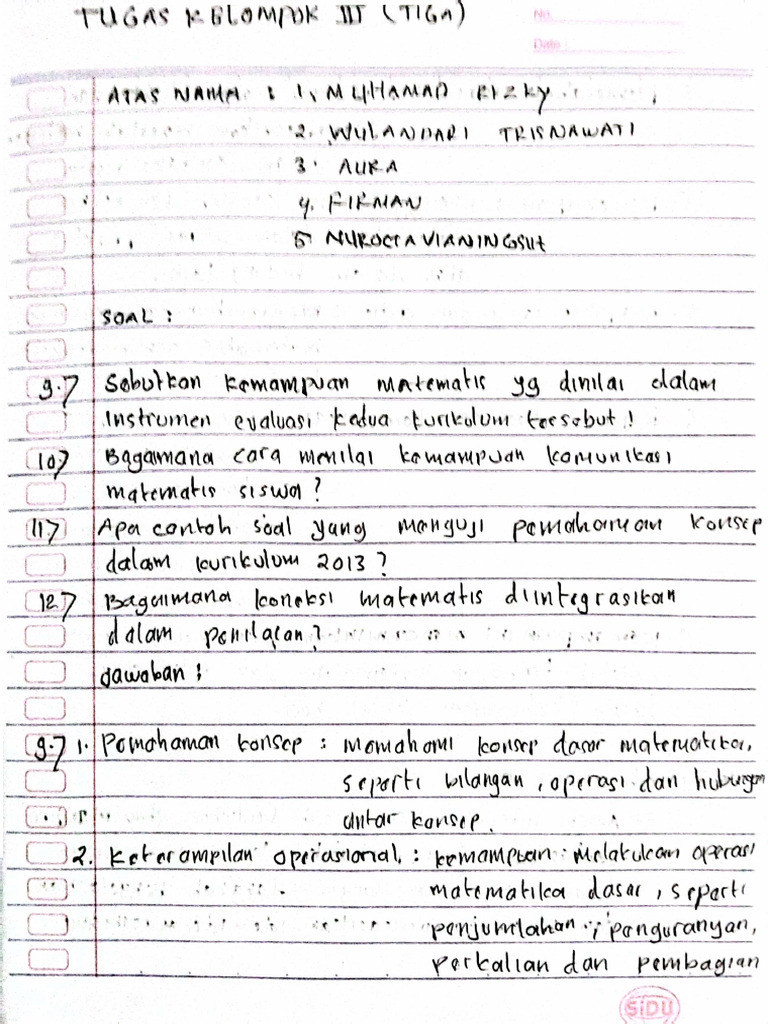 TUGAS KELOMPOK III (TIGA)
No.
Date :
ATAS NAMA : 1. MUHAMAD RIZKY
2. WULANDARI TRISNAWATI
3. AURA
4. FIRMAN
5. NUROCTAVIANINGSIH
SOAL :
9.7 Sebutkan kemampuan matematis yg dinilai dalam
Instrumen evaluasi kedua kurikulum tersebut !
10.7 Bagaimana cara menilai kemampuan komunikasi
matematis siswa ?
11.7 Apa contoh soal yang menguji pemahaman konsep
dalam kurikulum 2013 ?
12.7 Bagaimana koneksi matematis diintegrasikan
dalam penilaian ?
Jawaban :
9.7 1. Pemahaman konsep : Memahami konsep dasar matematika,
seperti bilangan, operasi dan hubungan
antar konsep.
2. Keterampilan operasional : kemampuan melakukan operasi
matematika dasar, seperti
penjumlahan, penguranyan,
perkalian dan pembagian
SiDU